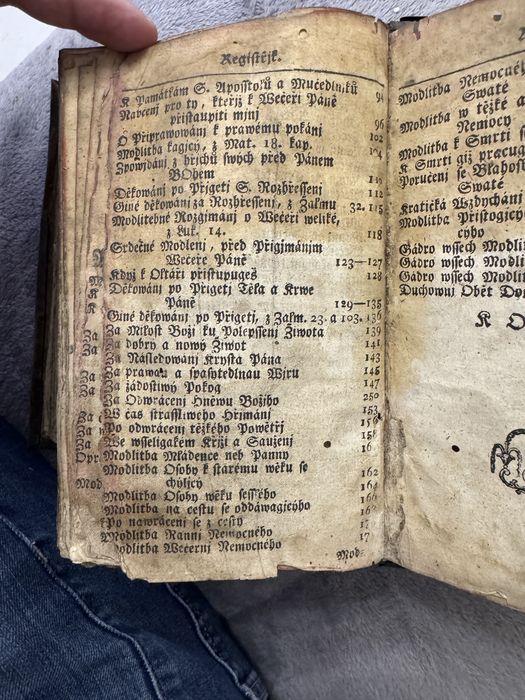 Registřjk.
K Památkám S. Aposstolů a Mučedlnjků 94
Navčenj pro ty, kteřjž k Wečeři Páně
přistaupiti mjnj 96
O Připrawowánj k prawému pokánj 102
Modlitba kagjcý, z Mat. 18. kap. 104
Zpowjdánj z hřjchů swých před Pánem
BOhem
Děkowánj po Přigetj S. Rozhřessenj 112
Giné děkowánj za Rozhřessenj, z Žalmu 32. 115
Modlitebné Rozgjmánj o Wečeři weliké,
z Luk. 14. 118
Srdečné Modlenj, před Přigjmánjm
Wečeře Páně 123—127
Když k Oltáři přistupugeš 128
Děkowánj po Přigetj Těla a Krwe
Páně 129—135
Giné děkowánj po Přigetj, z Žalm. 23. a 103. 136
Za Milost Božj ku Polepssenj Života 139
Za dobrý a nowý Život 141
Za Následowánj Krysta Pána 143
Za prawau a spasytedlnau Wjru 145
Za žádostiwý Pokog 147
Za Odwrácenj Hněwu Božjho 250
W čas strasslíwého Hřjmánj 153
Po odwrácenj těžkého Powětřj 156
We wsseligakém Křjži a Sauženj
Modlitba Mládence neb Panny
Modlitba Osoby k starému wěku se
chýljcý 162
Modlitba Osoby wěku sesslého 164
Modlitba na cestu se oddáwagjcýho 166
Po nawrácenj se z cesty
Modlitba Rannj Nemocného
Modlitba Wečernj Nemocného
Mod-
Modlitba Nemocného
Swaté
Modlitba w těžké a
Nemocy
Modlitba k Smrti
K Smrti giž pracug
Poručenj se Blahosl
Swaté
Kratičká Wzdýchánj
Modlitba Přjstogjcý
cýho
Gádro wssech Modli
Gádro wssech Modli
Gádro wssech Modlit
Duchownj Obět
K O